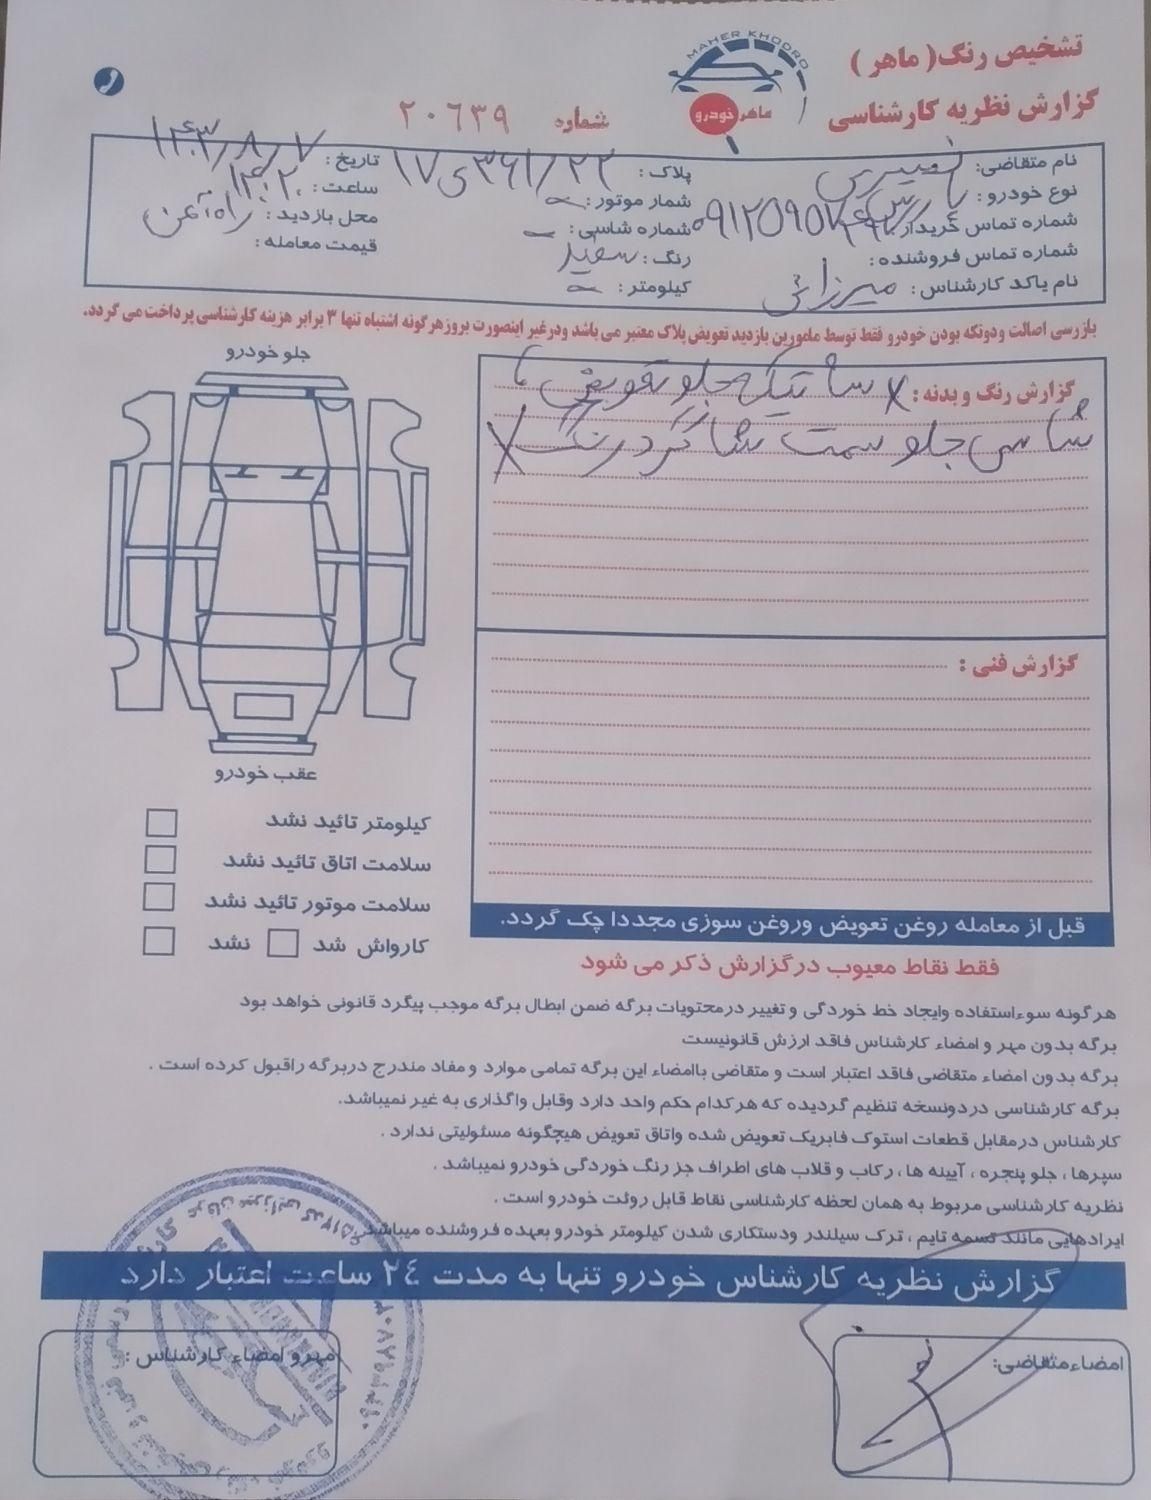 تشخیص رنگ( ماهر )
گزارش نظریه کارشناسی
MAHER KHODRO
ماهر خودرو
شماره ۲۰۶۳۹
نام متقاضی: نصیری
پلاک: ۳۶۱/۲۲ی۱۷
تاریخ: ۱۴۰۳/۸/۷
نوع خودرو:
شمار موتور:
ساعت: ۱۴:۲۰
شماره تماس خریدار:
شماره شاسی:
محل بازدید: راه‌آهن
شماره تماس فروشنده:
رنگ: سفید
قیمت معامله:
نام یاکد کارشناس: میرزائی
کیلومتر:
بازرسی اصالت ودوتکه بودن خودرو فقط توسط مامورین بازدید تعویض پلاک معتبر می باشد ودرغیر اینصورت بروزهرگونه اشتباه تنها ۳ برابر هزینه کارشناسی پرداخت می گردد.
جلو خودرو
عقب خودرو
گزارش رنگ و بدنه: سینی جلو تعویض
شاسی جلو سمت شاگرد رنگ
گزارش فنی :
کیلومتر تائید نشد
سلامت اتاق تائید نشد
سلامت موتور تائید نشد
کارواش شد نشد
قبل از معامله روغن تعویض وروغن سوزی مجددا چک گردد.
فقط نقاط معیوب درگزارش ذکر می شود
هرگونه سوءاستفاده وایجاد خط خوردگی و تغییر درمحتویات برگه ضمن ابطال برگه موجب پیگرد قانونی خواهد بود
برگه بدون مهر و امضاء کارشناس فاقد ارزش قانونیست
برگه بدون امضاء متقاضی فاقد اعتبار است و متقاضی باامضاء این برگه تمامی موارد و مفاد مندرج دربرگه راقبول کرده است .
برگه کارشناسی دردونسخه تنظیم گردیده که هرکدام حکم واحد دارد وقابل واگذاری به غیر نمیباشد.
کارشناس درمقابل قطعات استوک فابریک تعویض شده واتاق تعویض هیچگونه مسئولیتی ندارد .
سپرها ، جلو پنجره ، آیینه ها ، رکاب و قلاب های اطراف جز رنگ خوردگی خودرو نمیباشد .
نظریه کارشناسی مربوط به همان لحظه کارشناسی نقاط قابل روئت خودرو است .
ایرادهایی مانند تسمه تایم ، ترک سیلندر ودستکاری شدن کیلومتر خودرو بعهده فروشنده میباشد
گزارش نظریه کارشناس خودرو تنها به مدت ۲۴ ساعت اعتبار دارد
امضاءمتقاضی:
مهرو امضاء کارشناس :